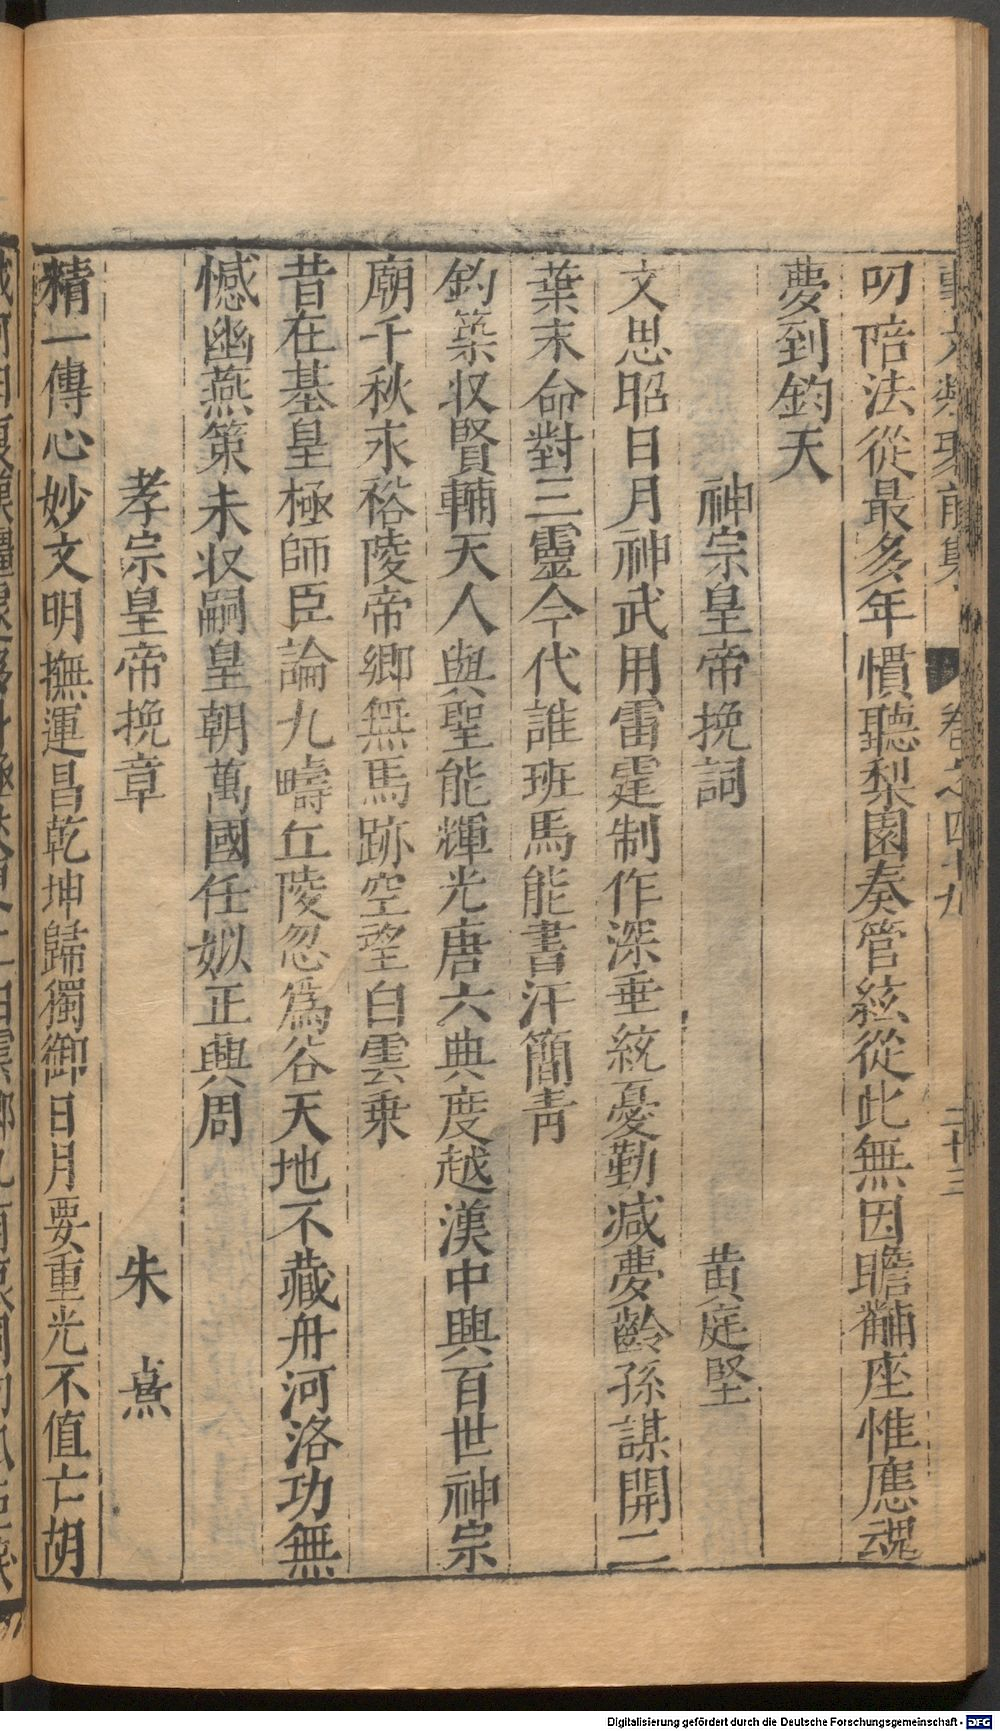 事文類聚前集 卷之四十九 二十三
叨陪法從最多年慣聽梨園奏管絃從此無因瞻黼座惟應魂
夢到鈞天
神宗皇帝挽詞 黄庭堅
文思昭日月神武用雷霆制作深垂統憂勤减夢齡孫謀開二
葉末命對三靈今代誰班馬能書汗簡青
釣築収賢輔天人與聖能輝光唐六典度越漢中興百世神宗
廟千秋永裕陵帝鄉無馬跡空望白雲乗
昔在基皇極師臣論九疇丘陵忽爲谷天地不藏舟河洛功無
憾幽燕策未収嗣皇朝萬國任姒正興周
孝宗皇帝挽章 朱熹
精一傳心妙文明撫運昌乾坤歸獨御日月要重光不值亡胡
Digitalisierung gefördert durch die Deutsche Forschungsgemeinschaft - DFG